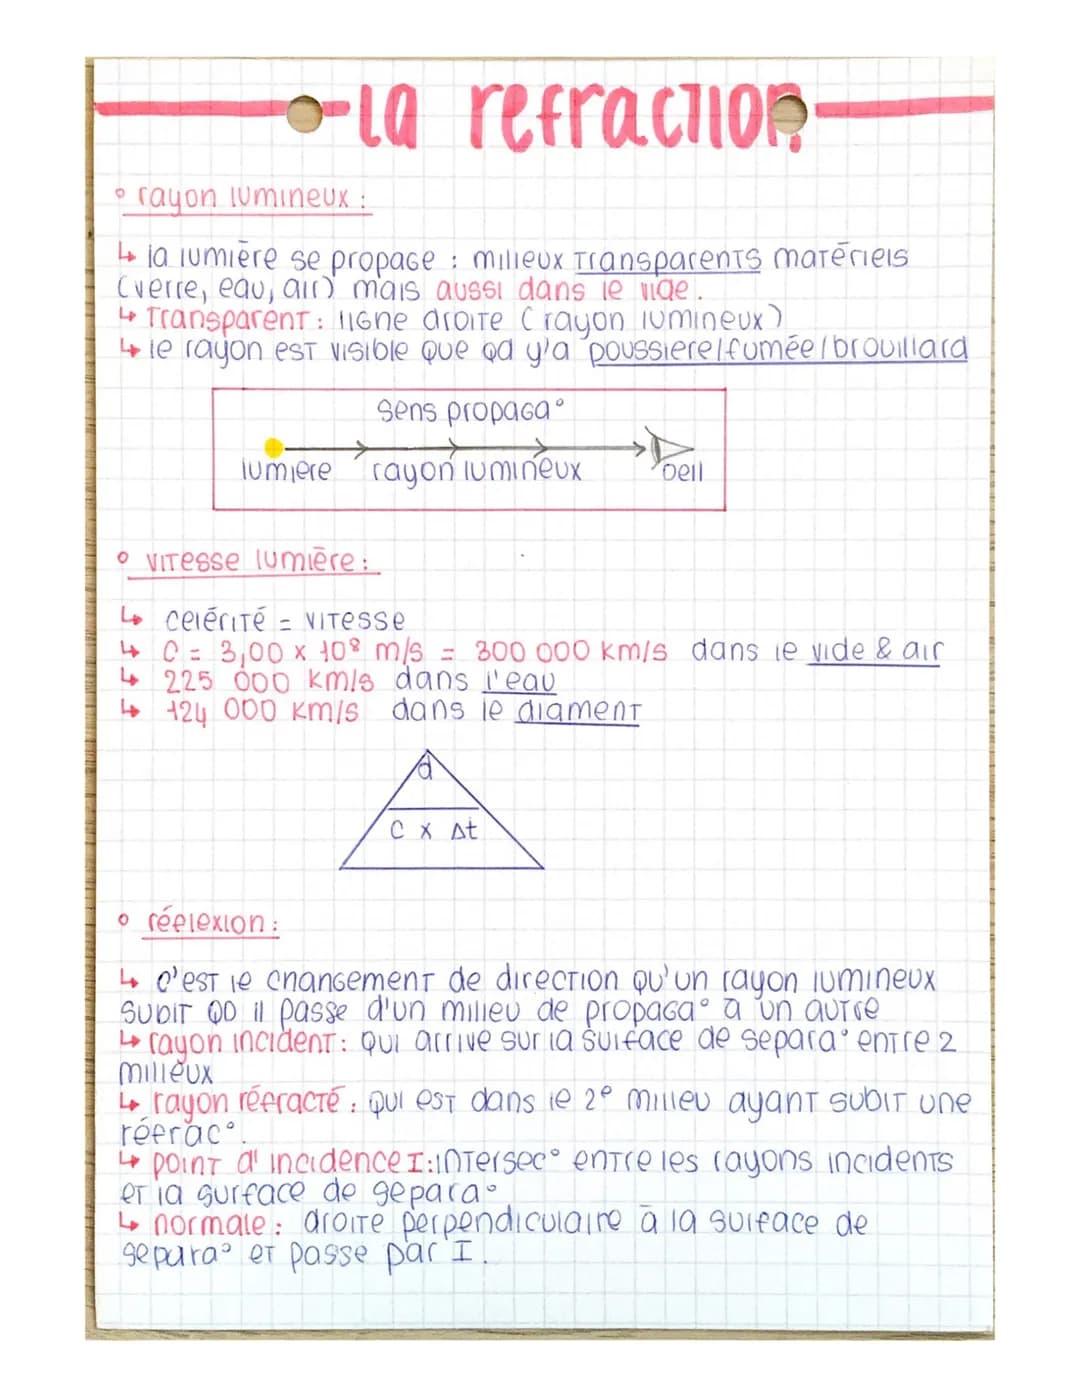 la refraction
° rayon lumineux :
↳ la lumière se propage : milieux transparents matériels
(verre, eau, air) mais aussi dans le vide.
↳ Transparent : ligne droite (rayon lumineux)
↳ le rayon est visible que qd y'a poussiere/fumée/brouillard
sens propaga°
lumiere rayon lumineux oeil
° vitesse lumière :
↳ celérité = vitesse
↳ C = 3,00 x 10⁸ m/s = 300 000 km/s dans le vide & air
↳ 225 000 km/s dans l'eau
↳ 124 000 km/s dans le diament
d
C x Δt
° réflexion :
↳ c'est le changement de direction qu'un rayon lumineux
subit qd il passe d'un milieu de propaga° à un autre
↳ rayon incident : qui arrive sur la surface de separa° entre 2
milieux
↳ rayon réfracté : qui est dans le 2e milieu ayant subit une
réfrac°.
↳ point d'incidence I : intersec° entre les rayons incidents
et la surface de separa°
↳ normale : droite perpendiculaire à la surface de
separa° et passe par I.